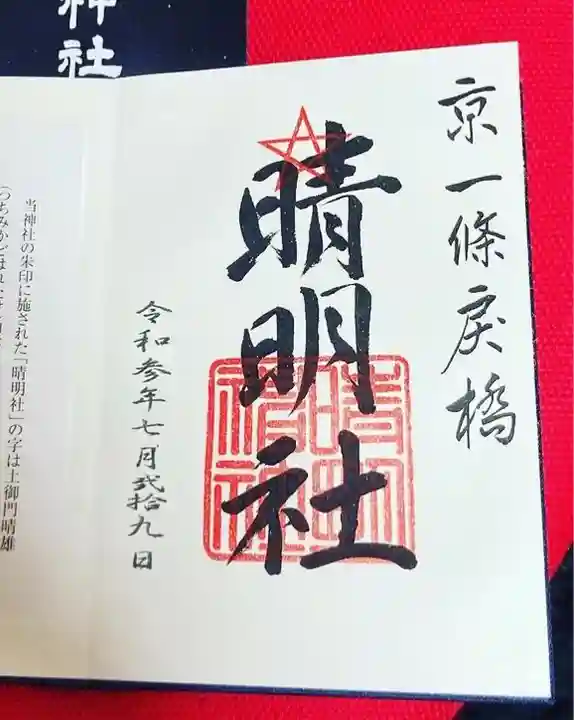 神社
京一條戻橋
晴明社
令和参年七月弐拾九日
当神社の朱印に施された「晴明社」の字は土御門晴雄